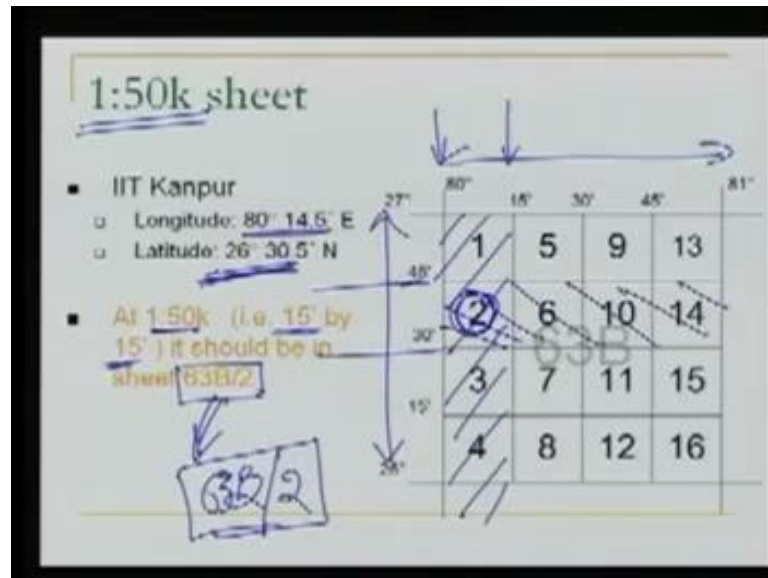 1:50k sheet
IIT Kanpur
Longitude: 80° 14.5' E
Latitude: 26° 30.5' N
At 1:50k (i.e. 15' by
15' ) it should be in
sheet 63B/2
63B/2
80° 15' 30' 45' 81°
27°
1 5 9 13
45'
2 6 10 14
30'
63B
3 7 11 15
15'
4 8 12 16
26°